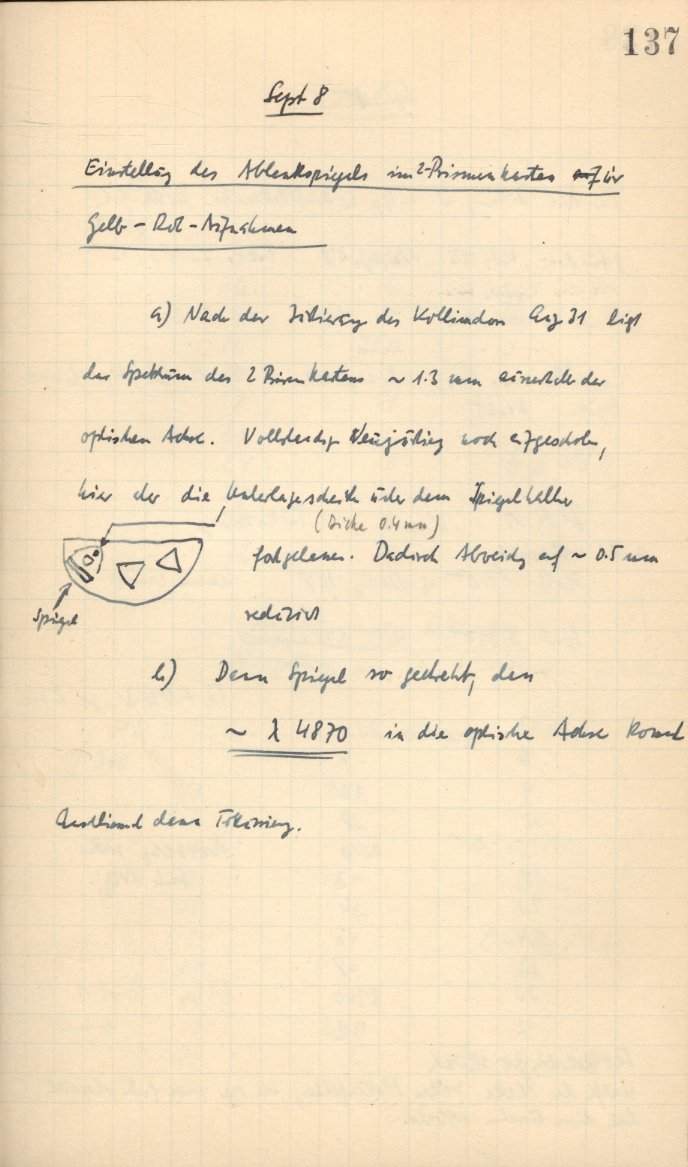 137
Sept 8
Einstellung des Ablenkspiegels im 2-Prismenkasten für
Gelb-Rot-Aufnahmen
a) Nach der Justierung des Kollimators Aug 31 liegt
das Spektrum des 2 Prismenkastens ~ 1.3 mm ausserhalb der
optischen Achse. Vollständige Neujustierung noch aufgeschoben,
hier der die Unterlagescheibe unter dem Spiegelhalter
(Dicke 0.4 mm)
fortgelassen. Dadurch Abweichg auf ~ 0.5 mm
Spiegel
reduziert
b) Dann Spiegel so gedreht, dass
~ λ 4870 in die optische Achse kommt
Anschliessend dann Fokussierung.